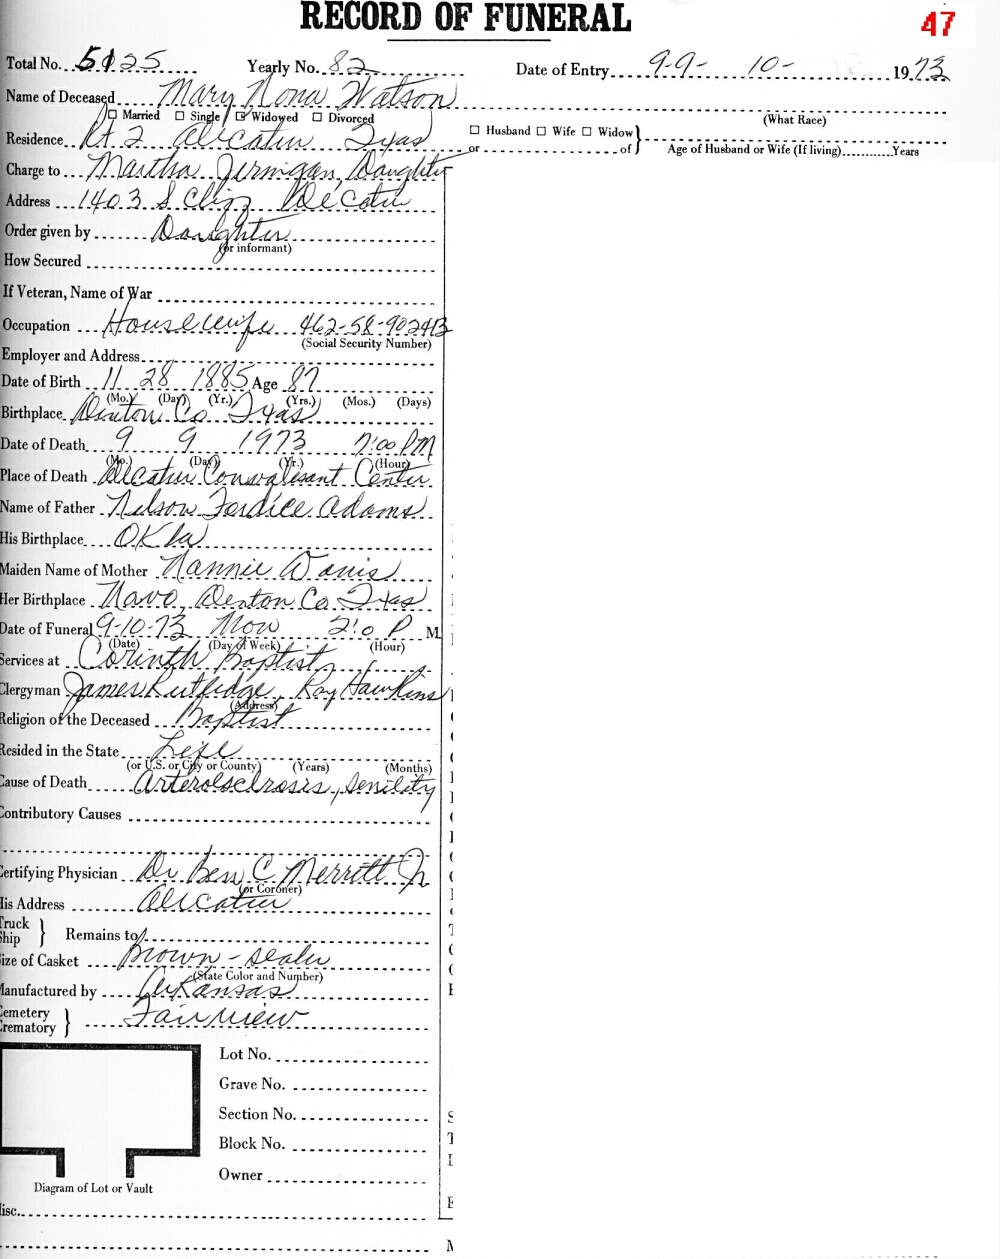 RECORD OF FUNERAL
47
Total No. 5125 Yearly No. 82 Date of Entry 9-9- 10- 1973
Name of Deceased Mary Nona Watson
(What Race)
☐ Married ☐ Single ☑ Widowed ☐ Divorced
Residence Rt 2 Decatur Texas ☐ Husband ☐ Wife ☐ Widow
or of Age of Husband or Wife (If living) Years
Charge to Martha Jernigan, Daughter
Address 1403 S Decatur
Order given by Daughter
(or informant)
How Secured
If Veteran, Name of War
Occupation Housewife 462-58-9024
(Social Security Number)
Employer and Address
Date of Birth 11 28 1885 Age 87
(Mo.) (Day) (Yr.) (Yrs.) (Mos.) (Days)
Birthplace Denton Co Texas
Date of Death 9 9 1973 7:00 PM
(Mo.) (Day) (Yr.) (Hour)
Place of Death Decatur Convalesant Center
Name of Father Nelson Ferdice Adams
His Birthplace Okla
Maiden Name of Mother Nannie
Her Birthplace Navo, Denton Co. Texas
Date of Funeral 9-10-73 Mon 2:0 P M
(Date) (Day of Week) (Hour)
Services at Corinth Baptist
Clergyman James Rutledge, Ray Hawkins
(Address)
Religion of the Deceased Baptist
Resided in the State Life
(or U.S. or City or County) (Years) (Months)
Cause of Death Arterolsclrosis, Senility
Contributory Causes
Certifying Physician Dr Ben C Merritt Jr
(or Coroner)
His Address Decatur
Truck
Ship Remains to
Size of Casket Brown - sealer
(State Color and Number)
Manufactured by Arkansas
Cemetery
Crematory Fairview
Lot No.
Grave No.
Section No.
Block No.
Owner
Diagram of Lot or Vault
isc.